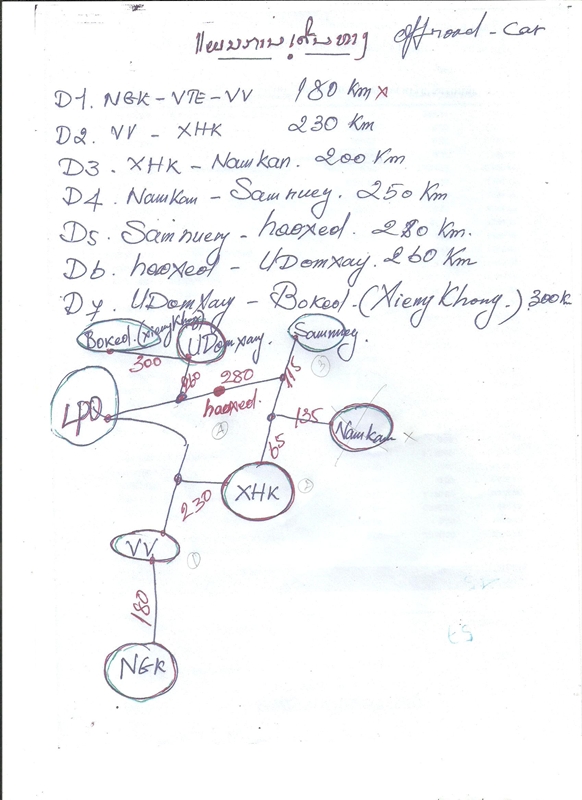 ແຜນການເດີນທາງ offroad-car
D1. NGK-VTE-VV 180 Km x
D2. VV - XHK 230 Km
D3. XHK - Namkan. 200 Km
D4. Namkan - Samnuey. 250 Km
D5. Samnuery - haoxed. 280 Km.
D6. haoxed - UDomxay. 260 Km
D7. UDomxay - Bokeo. (Xieng Khong.) 300k
Bokeo. (Xieng Khong)
UDomxay.
Samnuey.
300
280
115
3
LPQ
haoxed.
4
135
Namkan x
65
XHK
2
230
VV
1
180
NGK